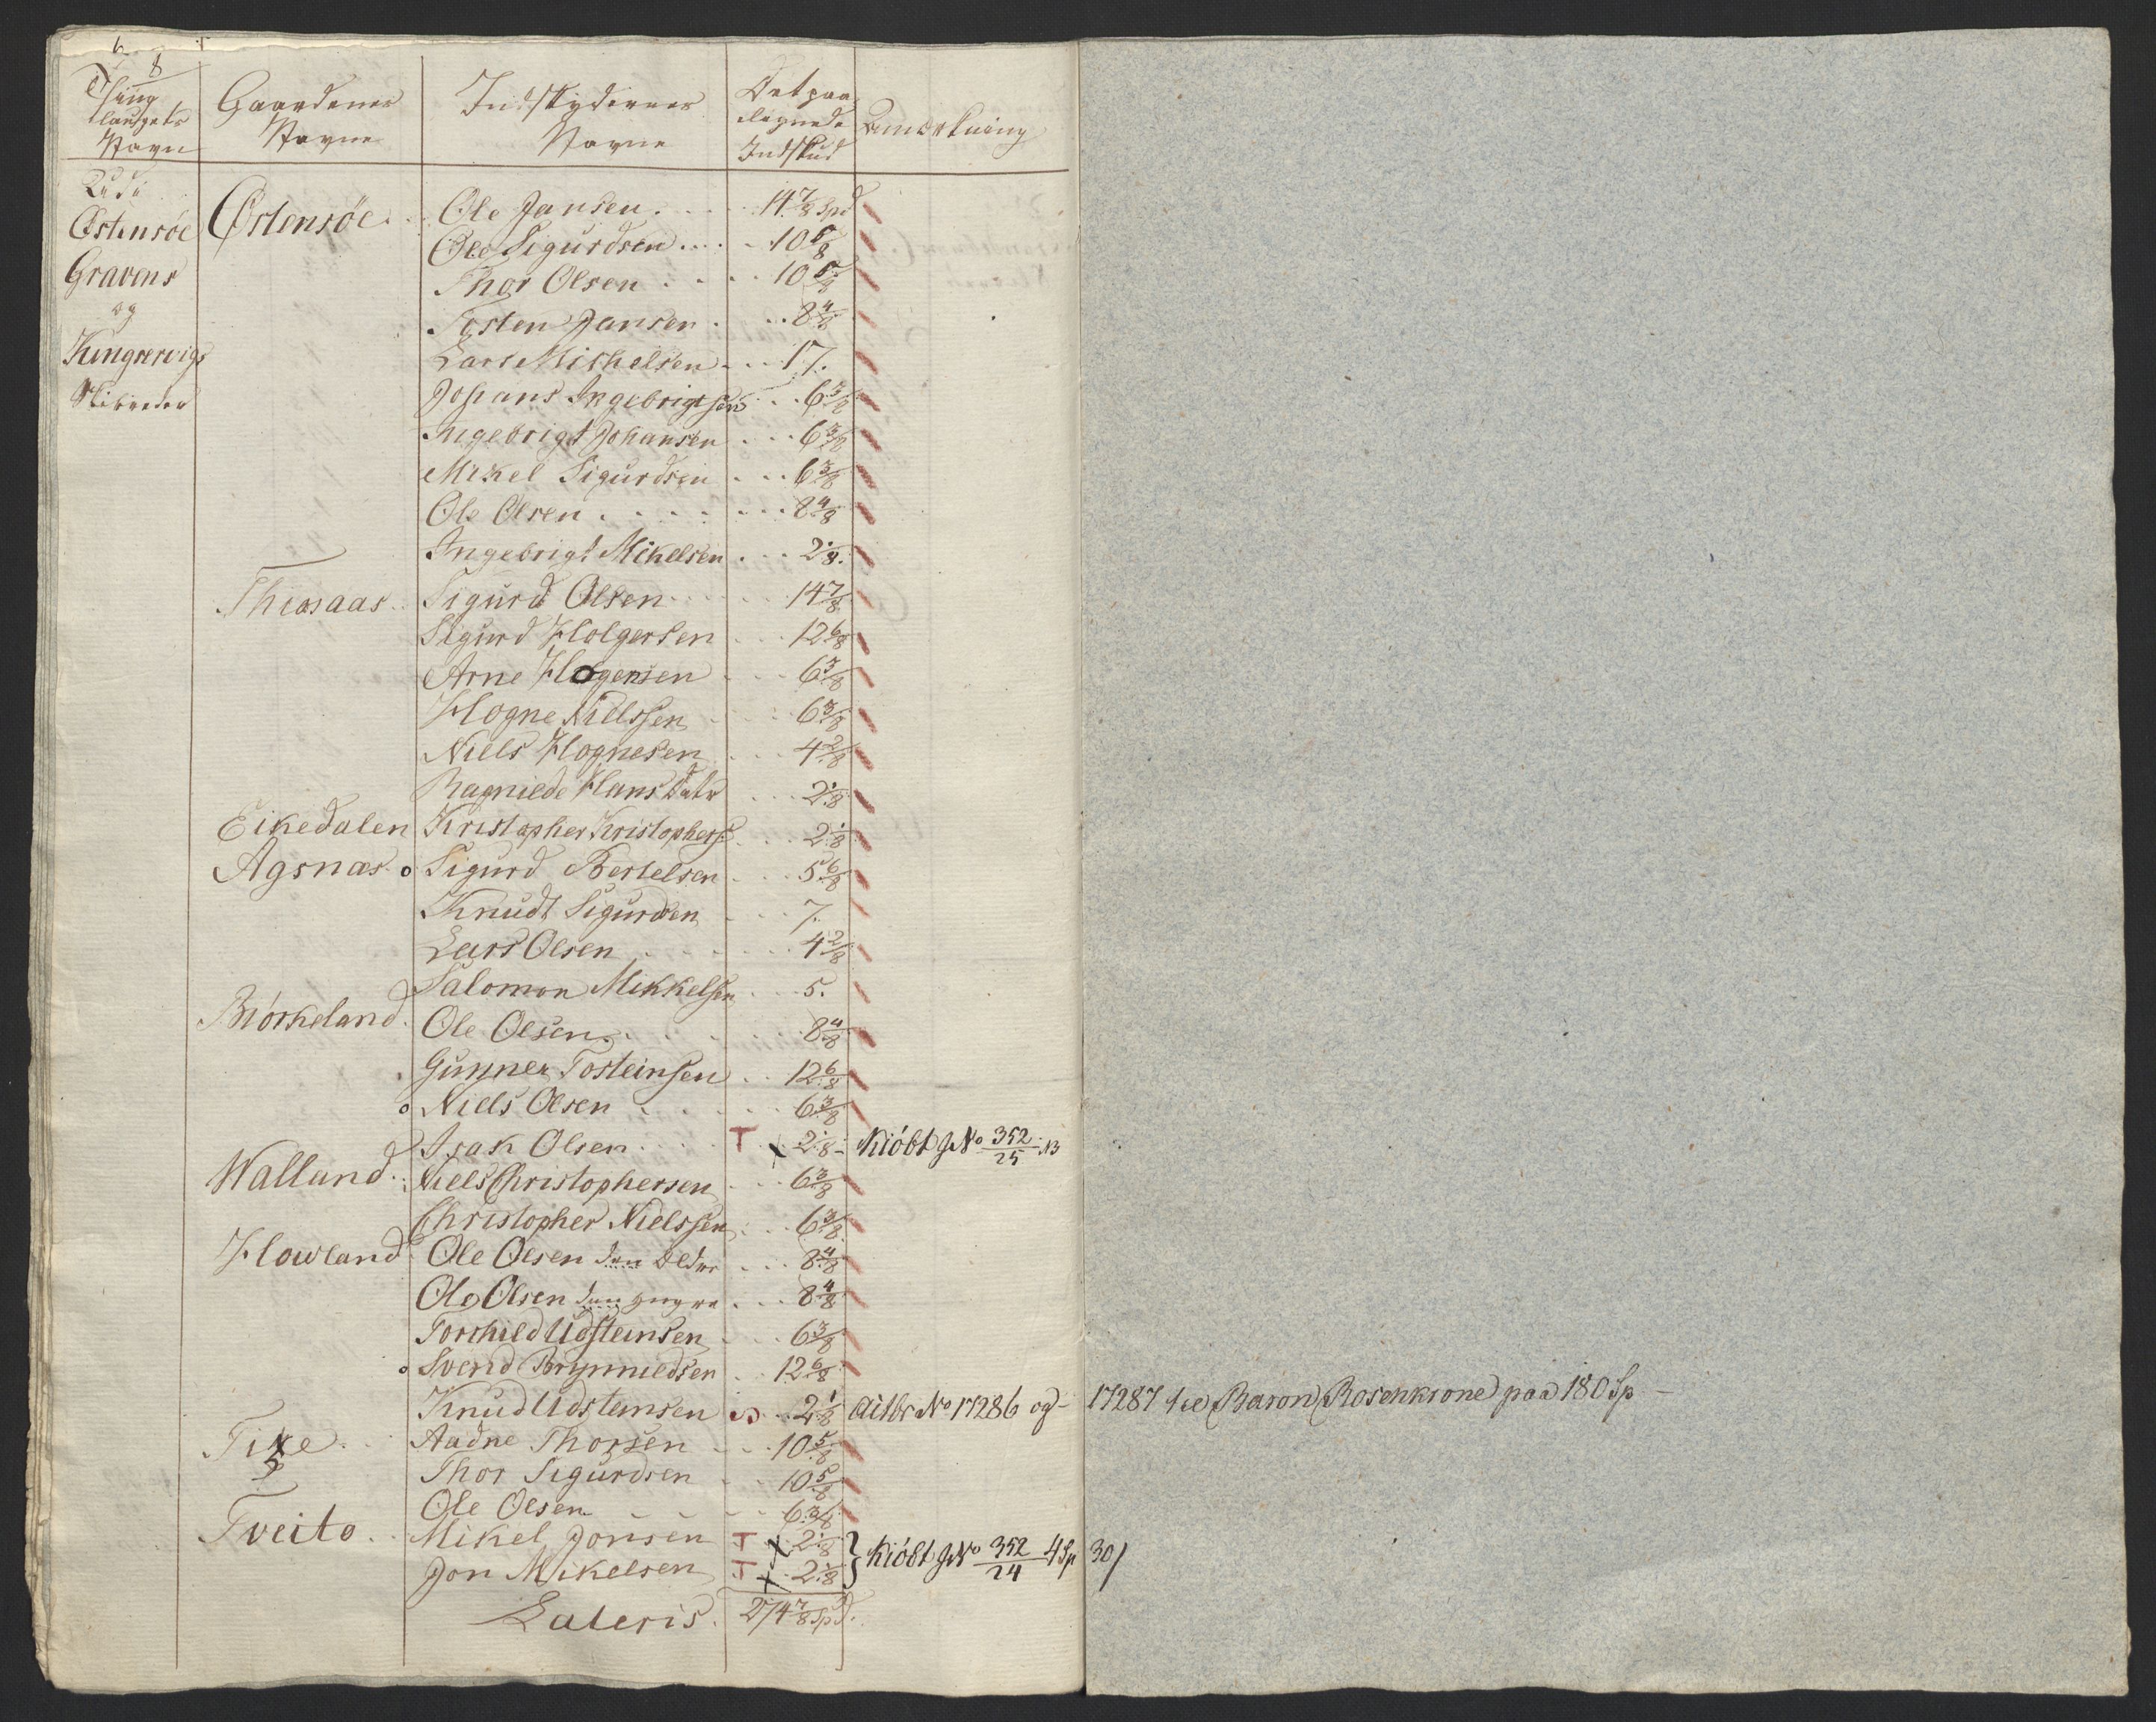 8
Thing laugets Navn | Gaardenes Navne | Indskydernes Navne | Det paa lignede Indskud | Anmærkning
Østensøe | Østensøe | Ole Jansen | 14 7/8 Spd
Gravens | Ole Sigurdsen | 10 5/8
Thor Olsen | 10 5/8
og | Tosten Jansen | 8 4/8
Kingservigs | Lars Mikhelsen | 17.
Skibreder | Johans Ingebrigtsen | 6 3/8
Ingebrigt Johansen | 6 3/8
Mikel Sigurdsen | 6 3/8
Ole Olsen | 8 4/8
Ingebrigt Mikelsen | 2 1/8
Thimaas | Sigurd Olsen | 14 7/8
Sigurd Holgersen | 12 6/8
Arne Hogensen | 6 3/8
Hogne Nielssen | 6 3/8
Niels Hognesen | 4 2/8
Ragnilde Hans Datr | 2 1/8
Eikedalen | Kristopher Kristophers | 2 1/8
Agsnæs | o Sigurd Bertelsen | 5 6/8
Knudt Sigurdsen | 7.
Lars Olsen | 4 2/8
Salomon Mikkelsen | 5.
Biörkeland | Ole Olsen | 8 4/8
Gunner Tosteinsen | 12 6/8
o Niels Olsen | 6 3/8
Isak Olsen | T x 2 1/8 | Kiöbt JNo 352/25 NB
Walland | Niels Christophersen | 6 3/8
Christopher Nielssen | 6 3/8
Howland | Ole Olsen den Eldre | 8 4/8
Ole Olsen den yngre | 8 4/8
Torchild Udsteinsen | 6 3/8
o Svend Brynnildsen | 12 6/8
Knud Udsteinsen | 2 1/8 | No 17286 og 17287 til Baron Rosenkrone paa 180 Sp
Tixe | Aadne Thorsen | 10 5/8
5 | Thor Sigurdsen | 10 5/8
Ole Olsen | 6 3/8
Tveito | Mikel Jonsen | T x 2 1/8
Jon Mikelsen | T x 2 1/8 } Kiöbt JNo 352/24 4 Sp 30/
Lateris | 274 7/8 Spd.